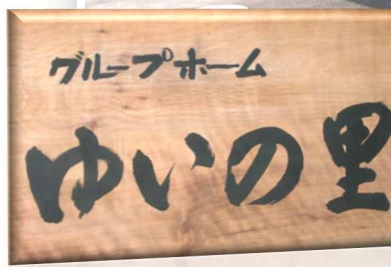 グループホーム
ゆいの里